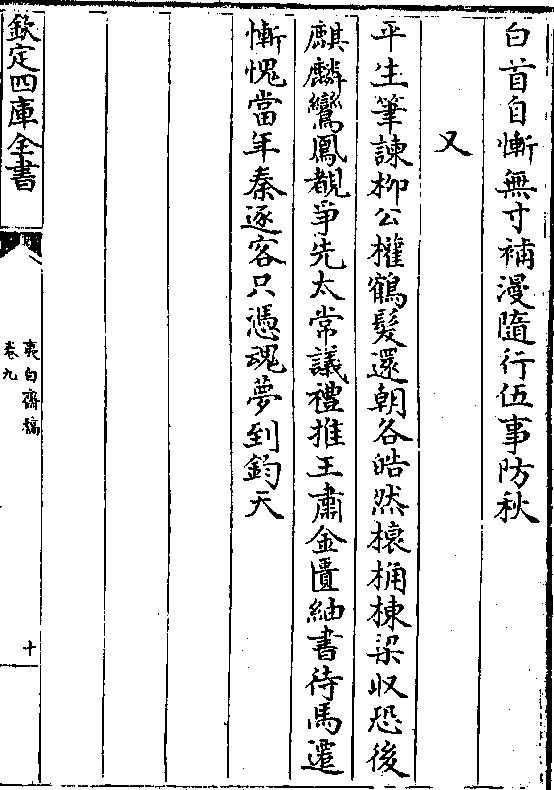 白首自慚無寸補漫隨行伍事防秋
又
平生筆諫柳公權鶴髮還朝各皓然榱桷棟梁収恐後
麒麟鸞鳳覩爭先太常議禮推王肅金匱紬書待馬遷
慚愧當年秦逐客只憑魂夢到鈞天
欽定四庫全書
夷白齋稿
卷九
十